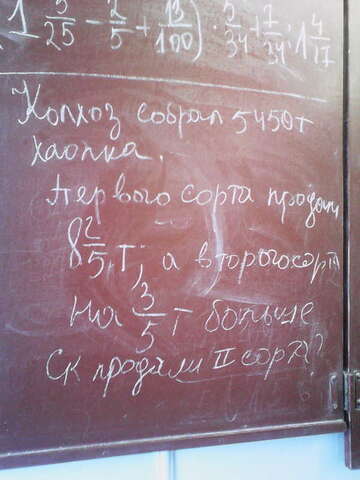 1 3/25 - 2/5 + 13/100) · 5/34 + 7/34 : 1 4/17
Колхоз собрал 5450т
хлопка.
Первого сорта продали
8 2/5 т, а второго сорта
на 3/5 т больше
Ск продали II сорта?